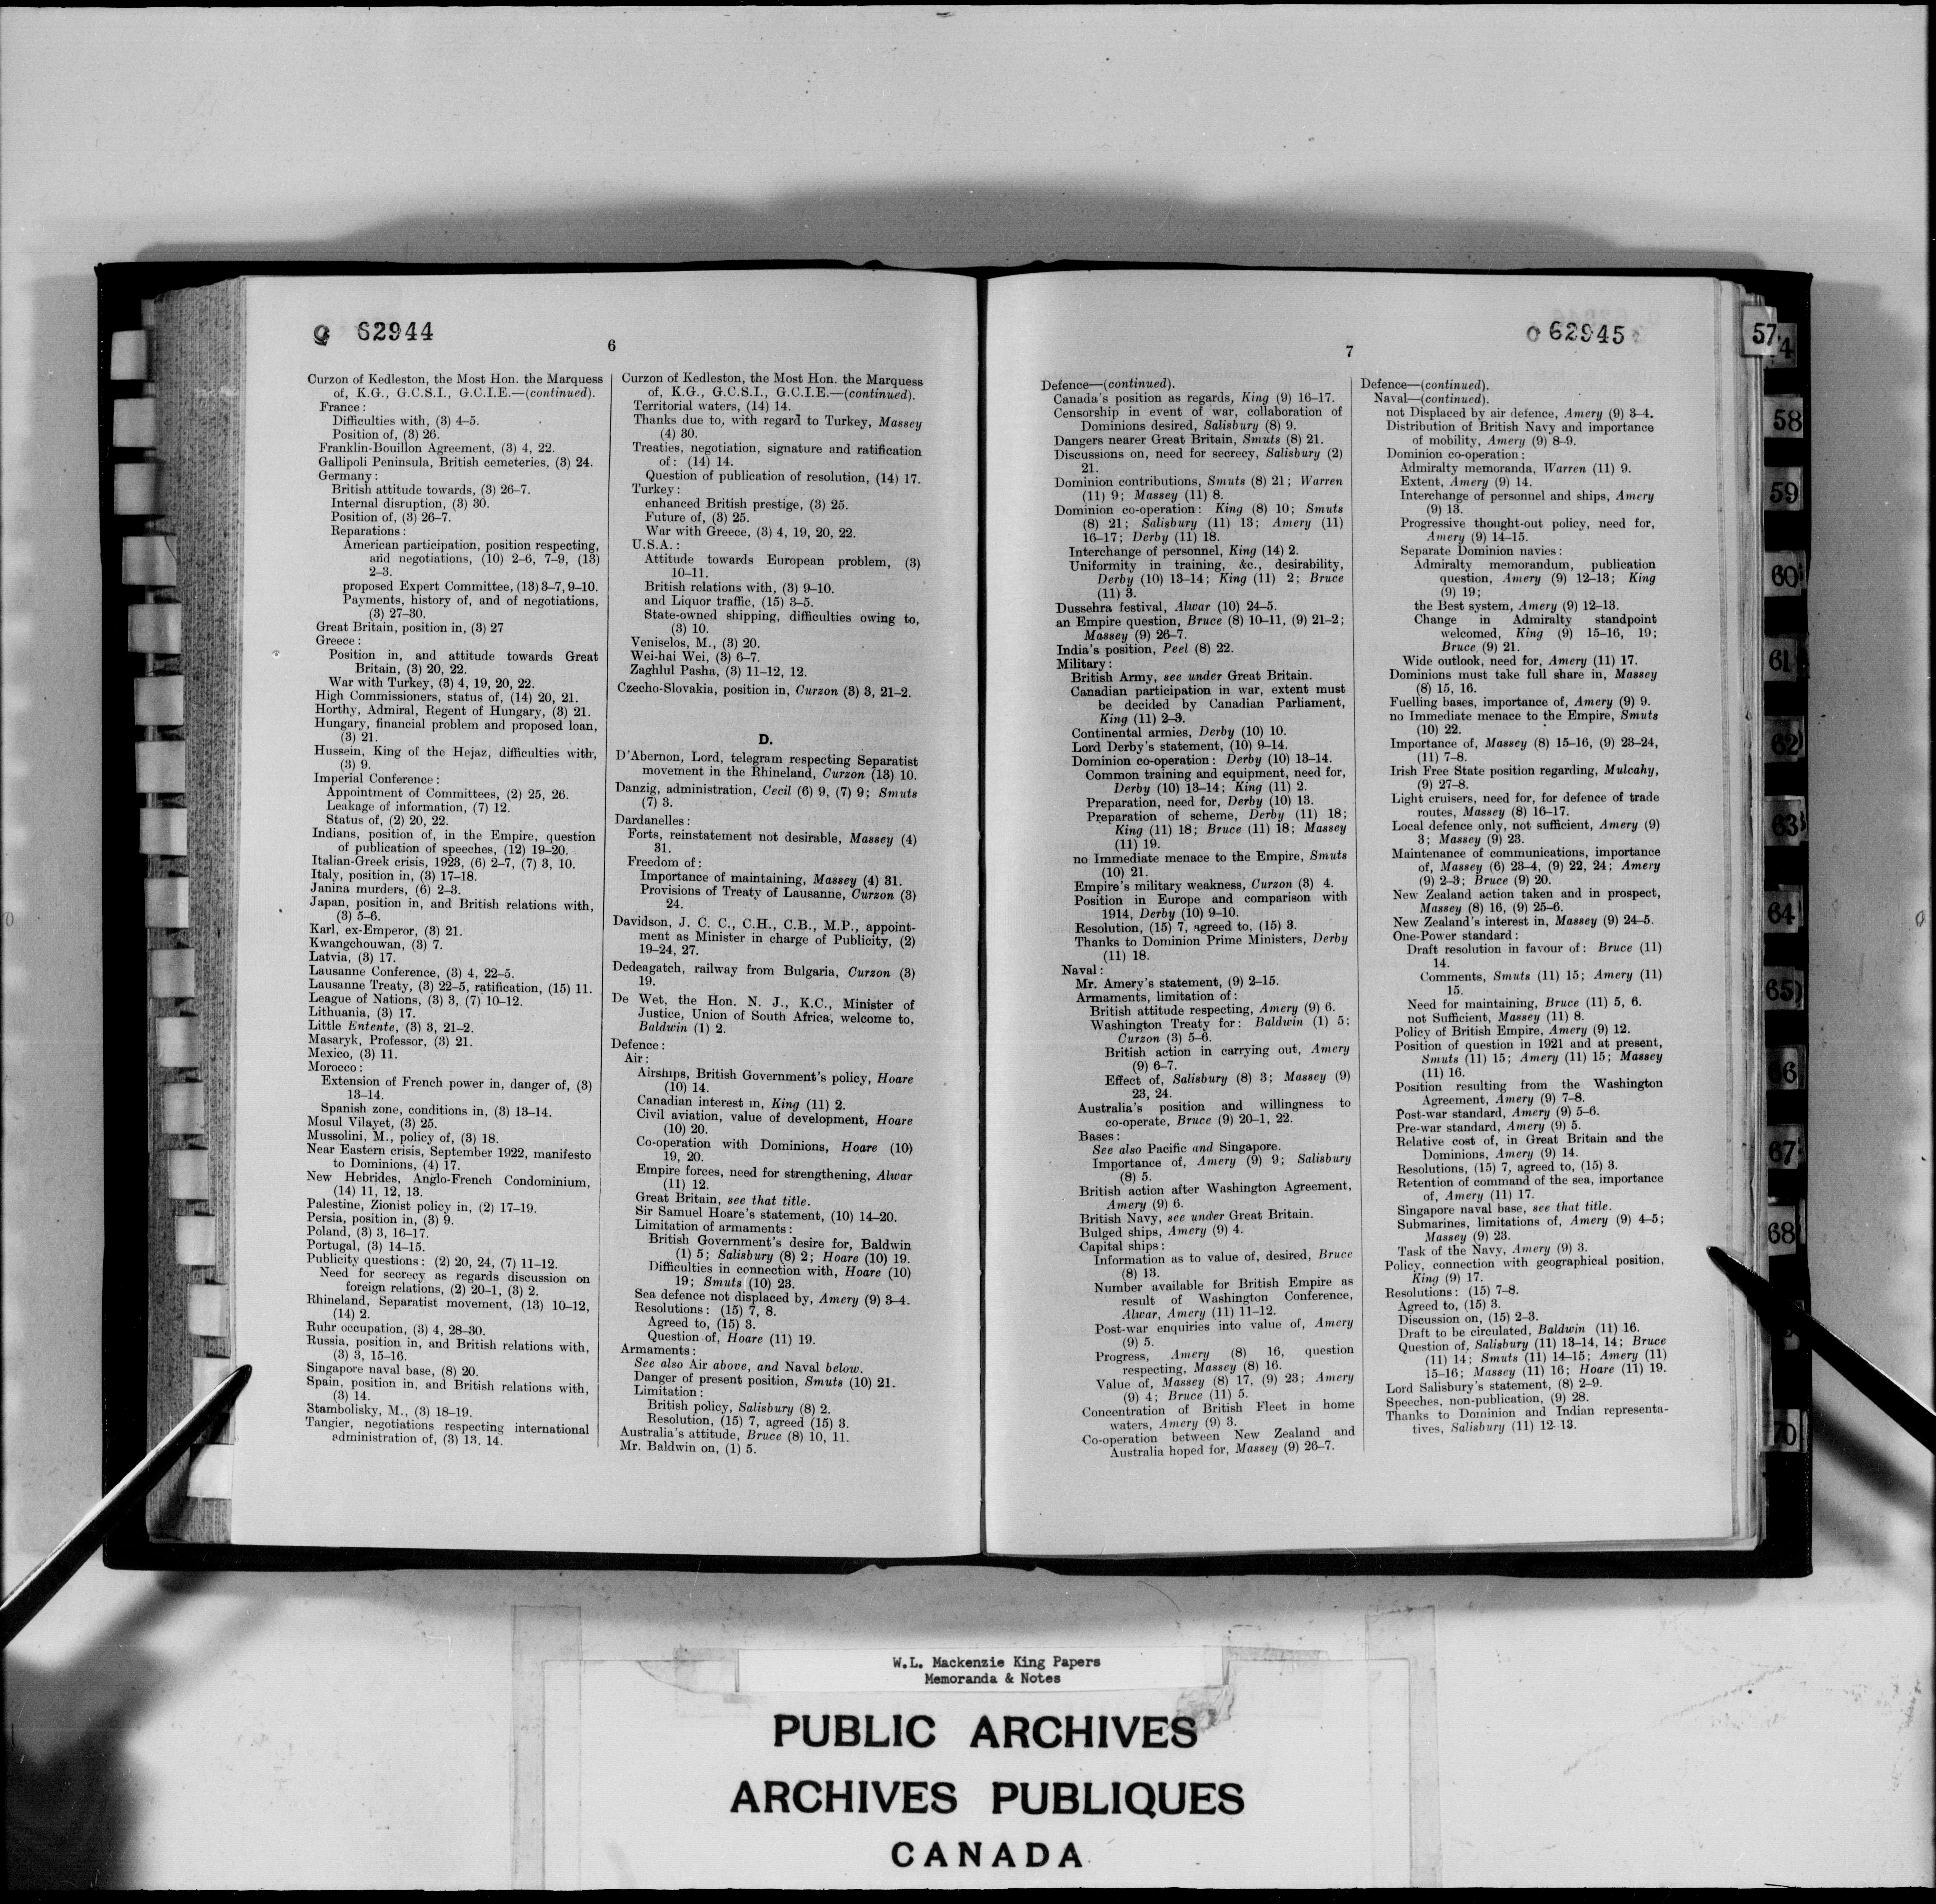 Q 62944
6
Curzon of Kedleston, the Most Hon. the Marquess
of, K.G., G.C.S.I., G.C.I.E.—(continued).
France:
Difficulties with, (3) 4–5.
Position of, (3) 26.
Franklin-Bouillon Agreement, (3) 4, 22.
Gallipoli Peninsula, British cemeteries, (3) 24.
Germany:
British attitude towards, (3) 26–7.
Internal disruption, (3) 30.
Position of, (3) 26–7.
Reparations:
American participation, position respecting,
and negotiations, (10) 2–6, 7–9, (13)
2–3.
proposed Expert Committee, (13) 3–7, 9–10.
Payments, history of, and of negotiations,
(3) 27–30.
Great Britain, position in, (3) 27
Greece:
Position in, and attitude towards Great
Britain, (3) 20, 22.
War with Turkey, (3) 4, 19, 20, 22.
High Commissioners, status of, (14) 20, 21.
Horthy, Admiral, Regent of Hungary, (3) 21.
Hungary, financial problem and proposed loan,
(3) 21.
Hussein, King of the Hejaz, difficulties with,
(3) 9.
Imperial Conference:
Appointment of Committees, (2) 25, 26.
Leakage of information, (7) 12.
Status of, (2) 20, 22.
Indians, position of, in the Empire, question
of publication of speeches, (12) 19–20.
Italian-Greek crisis, 1923, (6) 2–7, (7) 3, 10.
Italy, position in, (3) 17–18.
Janina murders, (6) 2–3.
Japan, position in, and British relations with,
(3) 5–6.
Karl, ex-Emperor, (3) 21.
Kwangchouwan, (3) 7.
Latvia, (3) 17.
Lausanne Conference, (3) 4, 22–5.
Lausanne Treaty, (3) 22–5, ratification, (15) 11.
League of Nations, (3) 3, (7) 10–12.
Lithuania, (3) 17.
Little Entente, (3) 3, 21–2.
Masaryk, Professor, (3) 21.
Mexico, (3) 11.
Morocco:
Extension of French power in, danger of, (3)
13–14.
Spanish zone, conditions in, (3) 13–14.
Mosul Vilayet, (3) 25.
Mussolini, M., policy of, (3) 18.
Near Eastern crisis, September 1922, manifesto
to Dominions, (4) 17.
New Hebrides, Anglo-French Condominium,
(14) 11, 12, 13.
Palestine, Zionist policy in, (2) 17–19.
Persia, position in, (3) 9.
Poland, (3) 3, 16–17.
Portugal, (3) 14–15.
Publicity questions: (2) 20, 24, (7) 11–12.
Need for secrecy as regards discussion on
foreign relations, (2) 20–1, (3) 2.
Rhineland, Separatist movement, (13) 10–12,
(14) 2.
Ruhr occupation, (3) 4, 28–30.
Russia, position in, and British relations with,
(3) 3, 15–16.
Singapore naval base, (8) 20.
Spain, position in, and British relations with,
(3) 14.
Stambolisky, M., (3) 18–19.
Tangier, negotiations respecting international
administration of, (3) 13, 14.
Curzon of Kedleston, the Most Hon. the Marquess
of, K.G., G.C.S.I., G.C.I.E.—(continued).
Territorial waters, (14) 14.
Thanks due to, with regard to Turkey, Massey
(4) 30.
Treaties, negotiation, signature and ratification
of: (14) 14.
Question of publication of resolution, (14) 17.
Turkey:
enhanced British prestige, (3) 25.
Future of, (3) 25.
War with Greece, (3) 4, 19, 20, 22.
U.S.A.:
Attitude towards European problem, (3)
10–11.
British relations with, (3) 9–10.
and Liquor traffic, (15) 3–5.
State-owned shipping, difficulties owing to,
(3) 10.
Veniselos, M., (3) 20.
Wei-hai Wei, (3) 6–7.
Zaghlul Pasha, (3) 11–12, 12.
Czecho-Slovakia, position in, Curzon (3) 3, 21–2.
D.
D'Abernon, Lord, telegram respecting Separatist
movement in the Rhineland, Curzon (13) 10.
Danzig, administration, Cecil (6) 9, (7) 9; Smuts
(7) 3.
Dardanelles:
Forts, reinstatement not desirable, Massey (4)
31.
Freedom of:
Importance of maintaining, Massey (4) 31.
Provisions of Treaty of Lausanne, Curzon (3)
24.
Davidson, J. C. C., C.H., C.B., M.P., appoint-
ment as Minister in charge of Publicity, (2)
19–24, 27.
Dedeagatch, railway from Bulgaria, Curzon (3)
19.
De Wet, the Hon. N. J., K.C., Minister of
Justice, Union of South Africa, welcome to,
Baldwin (1) 2.
Defence:
Air:
Airships, British Government's policy, Hoare
(10) 14.
Canadian interest in, King (11) 2.
Civil aviation, value of development, Hoare
(10) 20.
Co-operation with Dominions, Hoare (10)
19, 20.
Empire forces, need for strengthening, Alwar
(11) 12.
Great Britain, see that title.
Sir Samuel Hoare's statement, (10) 14–20.
Limitation of armaments:
British Government's desire for, Baldwin
(1) 5; Salisbury (8) 2; Hoare (10) 19.
Difficulties in connection with, Hoare (10)
19; Smuts (10) 23.
Sea defence not displaced by, Amery (9) 3–4.
Resolutions: (15) 7, 8.
Agreed to, (15) 3.
Question of, Hoare (11) 19.
Armaments:
See also Air above, and Naval below.
Danger of present position, Smuts (10) 21.
Limitation:
British policy, Salisbury (8) 2.
Resolution, (15) 7, agreed (15) 3.
Australia's attitude, Bruce (8) 10, 11.
Mr. Baldwin on, (1) 5.
O 62945
7
Defence—(continued).
Canada's position as regards, King (9) 16–17.
Censorship in event of war, collaboration of
Dominions desired, Salisbury (8) 9.
Dangers nearer Great Britain, Smuts (8) 21.
Discussions on, need for secrecy, Salisbury (2)
21.
Dominion contributions, Smuts (8) 21; Warren
(11) 9; Massey (11) 8.
Dominion co-operation: King (8) 10; Smuts
(8) 21; Salisbury (11) 13; Amery (11)
16–17; Derby (11) 18.
Interchange of personnel, King (14) 2.
Uniformity in training, &c., desirability,
Derby (10) 13–14; King (11) 2; Bruce
(11) 3.
Dussehra festival, Alwar (10) 24–5.
an Empire question, Bruce (8) 10–11, (9) 21–2;
Massey (9) 26–7.
India's position, Peel (8) 22.
Military:
British Army, see under Great Britain.
Canadian participation in war, extent must
be decided by Canadian Parliament,
King (11) 2–3.
Continental armies, Derby (10) 10.
Lord Derby's statement, (10) 9–14.
Dominion co-operation: Derby (10) 13–14.
Common training and equipment, need for,
Derby (10) 13–14; King (11) 2.
Preparation, need for, Derby (10) 13.
Preparation of scheme, Derby (11) 18;
King (11) 18; Bruce (11) 18; Massey
(11) 19.
no Immediate menace to the Empire, Smuts
(10) 21.
Empire's military weakness, Curzon (3) 4.
Position in Europe and comparison with
1914, Derby (10) 9–10.
Resolution, (15) 7, agreed to, (15) 3.
Thanks to Dominion Prime Ministers, Derby
(11) 18.
Naval:
Mr. Amery's statement, (9) 2–15.
Armaments, limitation of:
British attitude respecting, Amery (9) 6.
Washington Treaty for: Baldwin (1) 5;
Curzon (3) 5–6.
British action in carrying out, Amery
(9) 6–7.
Effect of, Salisbury (8) 3; Massey (9)
23, 24.
Australia's position and willingness to
co-operate, Bruce (9) 20–1, 22.
Bases:
See also Pacific and Singapore.
Importance of, Amery (9) 9; Salisbury
(8) 5.
British action after Washington Agreement,
Amery (9) 6.
British Navy, see under Great Britain.
Bulged ships, Amery (9) 4.
Capital ships:
Information as to value of, desired, Bruce
(8) 13.
Number available for British Empire as
result of Washington Conference,
Alwar, Amery (11) 11–12.
Post-war enquiries into value of, Amery
(9) 5.
Progress, Amery (8) 16, question
respecting, Massey (8) 16.
Value of, Massey (8) 17, (9) 23; Amery
(9) 4; Bruce (11) 5.
Concentration of British Fleet in home
waters, Amery (9) 3.
Co-operation between New Zealand and
Australia hoped for, Massey (9) 26–7.
Defence—(continued).
Naval—(continued).
not Displaced by air defence, Amery (9) 3–4.
Distribution of British Navy and importance
of mobility, Amery (9) 8–9.
Dominion co-operation:
Admiralty memoranda, Warren (11) 9.
Extent, Amery (9) 14.
Interchange of personnel and ships, Amery
(9) 13.
Progressive thought-out policy, need for,
Amery (9) 14–15.
Separate Dominion navies:
Admiralty memorandum, publication
question, Amery (9) 12–13; King
(9) 19;
the Best system, Amery (9) 12–13.
Change in Admiralty standpoint
welcomed, King (9) 15–16, 19;
Bruce (9) 21.
Wide outlook, need for, Amery (11) 17.
Dominions must take full share in, Massey
(8) 15, 16.
Fuelling bases, importance of, Amery (9) 9.
no Immediate menace to the Empire, Smuts
(10) 22.
Importance of, Massey (8) 15–16, (9) 23–24,
(11) 7–8.
Irish Free State position regarding, Mulcahy,
(9) 27–8.
Light cruisers, need for, for defence of trade
routes, Massey (8) 16–17.
Local defence only, not sufficient, Amery (9)
3; Massey (9) 23.
Maintenance of communications, importance
of, Massey (6) 23–4, (9) 22, 24; Amery
(9) 2–3; Bruce (9) 20.
New Zealand action taken and in prospect,
Massey (8) 16, (9) 25–6.
New Zealand's interest in, Massey (9) 24–5.
One-Power standard:
Draft resolution in favour of: Bruce (11)
14.
Comments, Smuts (11) 15; Amery (11)
15.
Need for maintaining, Bruce (11) 5, 6.
not Sufficient, Massey (11) 8.
Policy of British Empire, Amery (9) 12.
Position of question in 1921 and at present,
Smuts (11) 15; Amery (11) 15; Massey
(11) 16.
Position resulting from the Washington
Agreement, Amery (9) 7–8.
Post-war standard, Amery (9) 5–6.
Pre-war standard, Amery (9) 5.
Relative cost of, in Great Britain and the
Dominions, Amery (9) 14.
Resolutions, (15) 7, agreed to, (15) 3.
Retention of command of the sea, importance
of, Amery (11) 17.
Singapore naval base, see that title.
Submarines, limitations of, Amery (9) 4–5;
Massey (9) 23.
Task of the Navy, Amery (9) 3.
Policy, connection with geographical position,
King (9) 17.
Resolutions: (15) 7–8.
Agreed to, (15) 3.
Discussion on, (15) 2–3.
Draft to be circulated, Baldwin (11) 16.
Question of, Salisbury (11) 13–14, 14; Bruce
(11) 14; Smuts (11) 14–15; Amery (11)
15–16; Massey (11) 16; Hoare (11) 19.
Lord Salisbury's statement, (8) 2–9.
Speeches, non-publication, (9) 28.
Thanks to Dominion and Indian representa-
tives, Salisbury (11) 12-13.
57
58
59
60
61
62
63
64
65
66
67
68
70
W.L. Mackenzie King Papers
Memoranda & Notes
PUBLIC ARCHIVES
ARCHIVES PUBLIQUES
CANADA